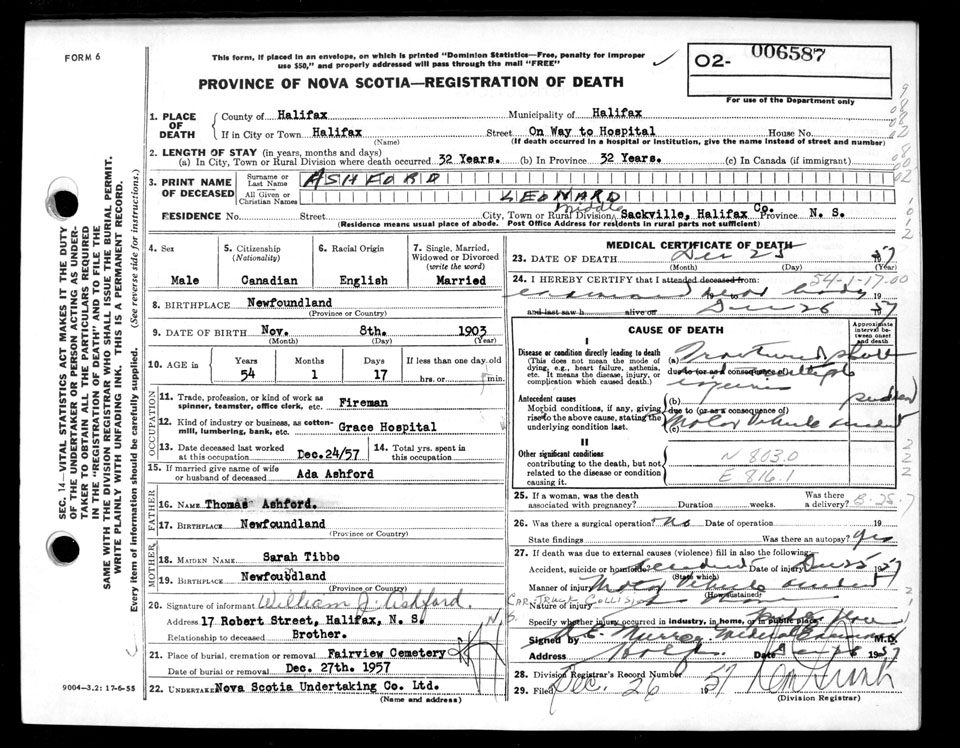 FORM 6
This form, if placed in an envelope, on which is printed "Dominion Statistics—Free, penalty for improper
use $50," and properly addressed will pass through the mail "FREE"
PROVINCE OF NOVA SCOTIA—REGISTRATION OF DEATH
02- 006587
For use of the Department only
1. PLACE OF DEATH
County of Halifax Municipality of Halifax
If in City or Town Halifax Street On Way to Hospital House No.
(Name) (If death occurred in a hospital or institution, give the name instead of street and number)
2. LENGTH OF STAY (in years, months and days)
(a) In City, Town or Rural Division where death occurred 32 Years. (b) In Province 32 Years. (c) In Canada (if immigrant)
3. PRINT NAME OF DECEASED
Surname or Last Name ASHFORD
All Given or Christian Names LEONARD
RESIDENCE No. Street City, Town or Rural Division Middle Sackville, Halifax Co. Province N. S.
(Residence means usual place of abode. Post Office Address for residents in rural parts not sufficient)
4. Sex
Male
5. Citizenship (Nationality)
Canadian
6. Racial Origin
English
7. Single, Married, Widowed or Divorced (write the word)
Married
8. BIRTHPLACE Newfoundland
(Province or Country)
9. DATE OF BIRTH Nov. 8th. 1903
(Month) (Day) (Year)
10. AGE in
Years Months Days If less than one day old
54 1 17 hrs. or min.
OCCUPATION
11. Trade, profession, or kind of work as spinner, teamster, office clerk, etc. Fireman
12. Kind of industry or business, as cotton-mill, lumbering, bank, etc. Grace Hospital
13. Date deceased last worked at this occupation Dec.24/57
14. Total yrs. spent in this occupation
15. If married give name of wife or husband of deceased Ada Ashford
FATHER
16. NAME Thomas Ashford.
17. BIRTHPLACE Newfoundland
(Province or Country)
MOTHER
18. MAIDEN NAME Sarah Tibbo
19. BIRTHPLACE Newfoundland
(Province or Country)
20. Signature of informant William J. Ashford.
Address 17 Robert Street, Halifax, N. S.
Relationship to deceased Brother.
21. Place of burial, cremation or removal Fairview Cemetery
Date of burial or removal Dec. 27th. 1957
22. UNDERTAKER Nova Scotia Undertaking Co. Ltd.
(Name and address)
MEDICAL CERTIFICATE OF DEATH
23. DATE OF DEATH Dec 25 57
(Month) (Day) (Year)
24. I HEREBY CERTIFY that I attended deceased from: 54-1-17.00
19
and last saw h alive on Dec 26 1957
CAUSE OF DEATH
Approximate interval between onset and death
I
Disease or condition directly leading to death
(This does not mean the mode of dying, e.g., heart failure, asthenia, etc. It means the disease, injury, or complication which caused death.)
(a) Fractured skull
due to (or as a consequence of) multiple
injuries
Antecedent causes
Morbid conditions, if any, giving rise to the above cause, stating the underlying condition last.
(b)
due to (or as a consequence of)
(c) Motor Vehicle accident
II
Other significant conditions
contributing to the death, but not related to the disease or condition causing it.
N 803.0
E 816.1
25. If a woman, was the death associated with pregnancy? Duration weeks. Was there a delivery? B-25-7
26. Was there a surgical operation? No Date of operation 19
State findings Was there an autopsy? Yes
27. If death was due to external causes (violence) fill in also the following:
Accident, suicide or homicide? Accident Date of injury Dec 25 1957
(State which)
Manner of injury Motor Vehicle accident
(How sustained)
CAR-TRUCK COLLISION
Nature of injury
Specify whether injury occurred in industry, in home, or in public place
Signed by Murray Medical Examiner M.D.
Address Halifax Date 1957
28. Division Registrar's Record Number
29. Filed Dec. 26 1957
(Division Registrar)
SEC. 14—VITAL STATISTICS ACT MAKES IT THE DUTY
OF THE UNDERTAKER OR PERSON ACTING AS UNDER-
TAKER TO OBTAIN ALL THE PARTICULARS REQUIRED
IN THE "REGISTRATION OF DEATH" AND TO FILE THE
SAME WITH THE DIVISION REGISTRAR WHO SHALL ISSUE THE BURIAL PERMIT.
WRITE PLAINLY WITH UNFADING INK. THIS IS A PERMANENT RECORD.
Every item of information should be carefully supplied. (See reverse side for instructions.)
9004—3.2: 17-6-55